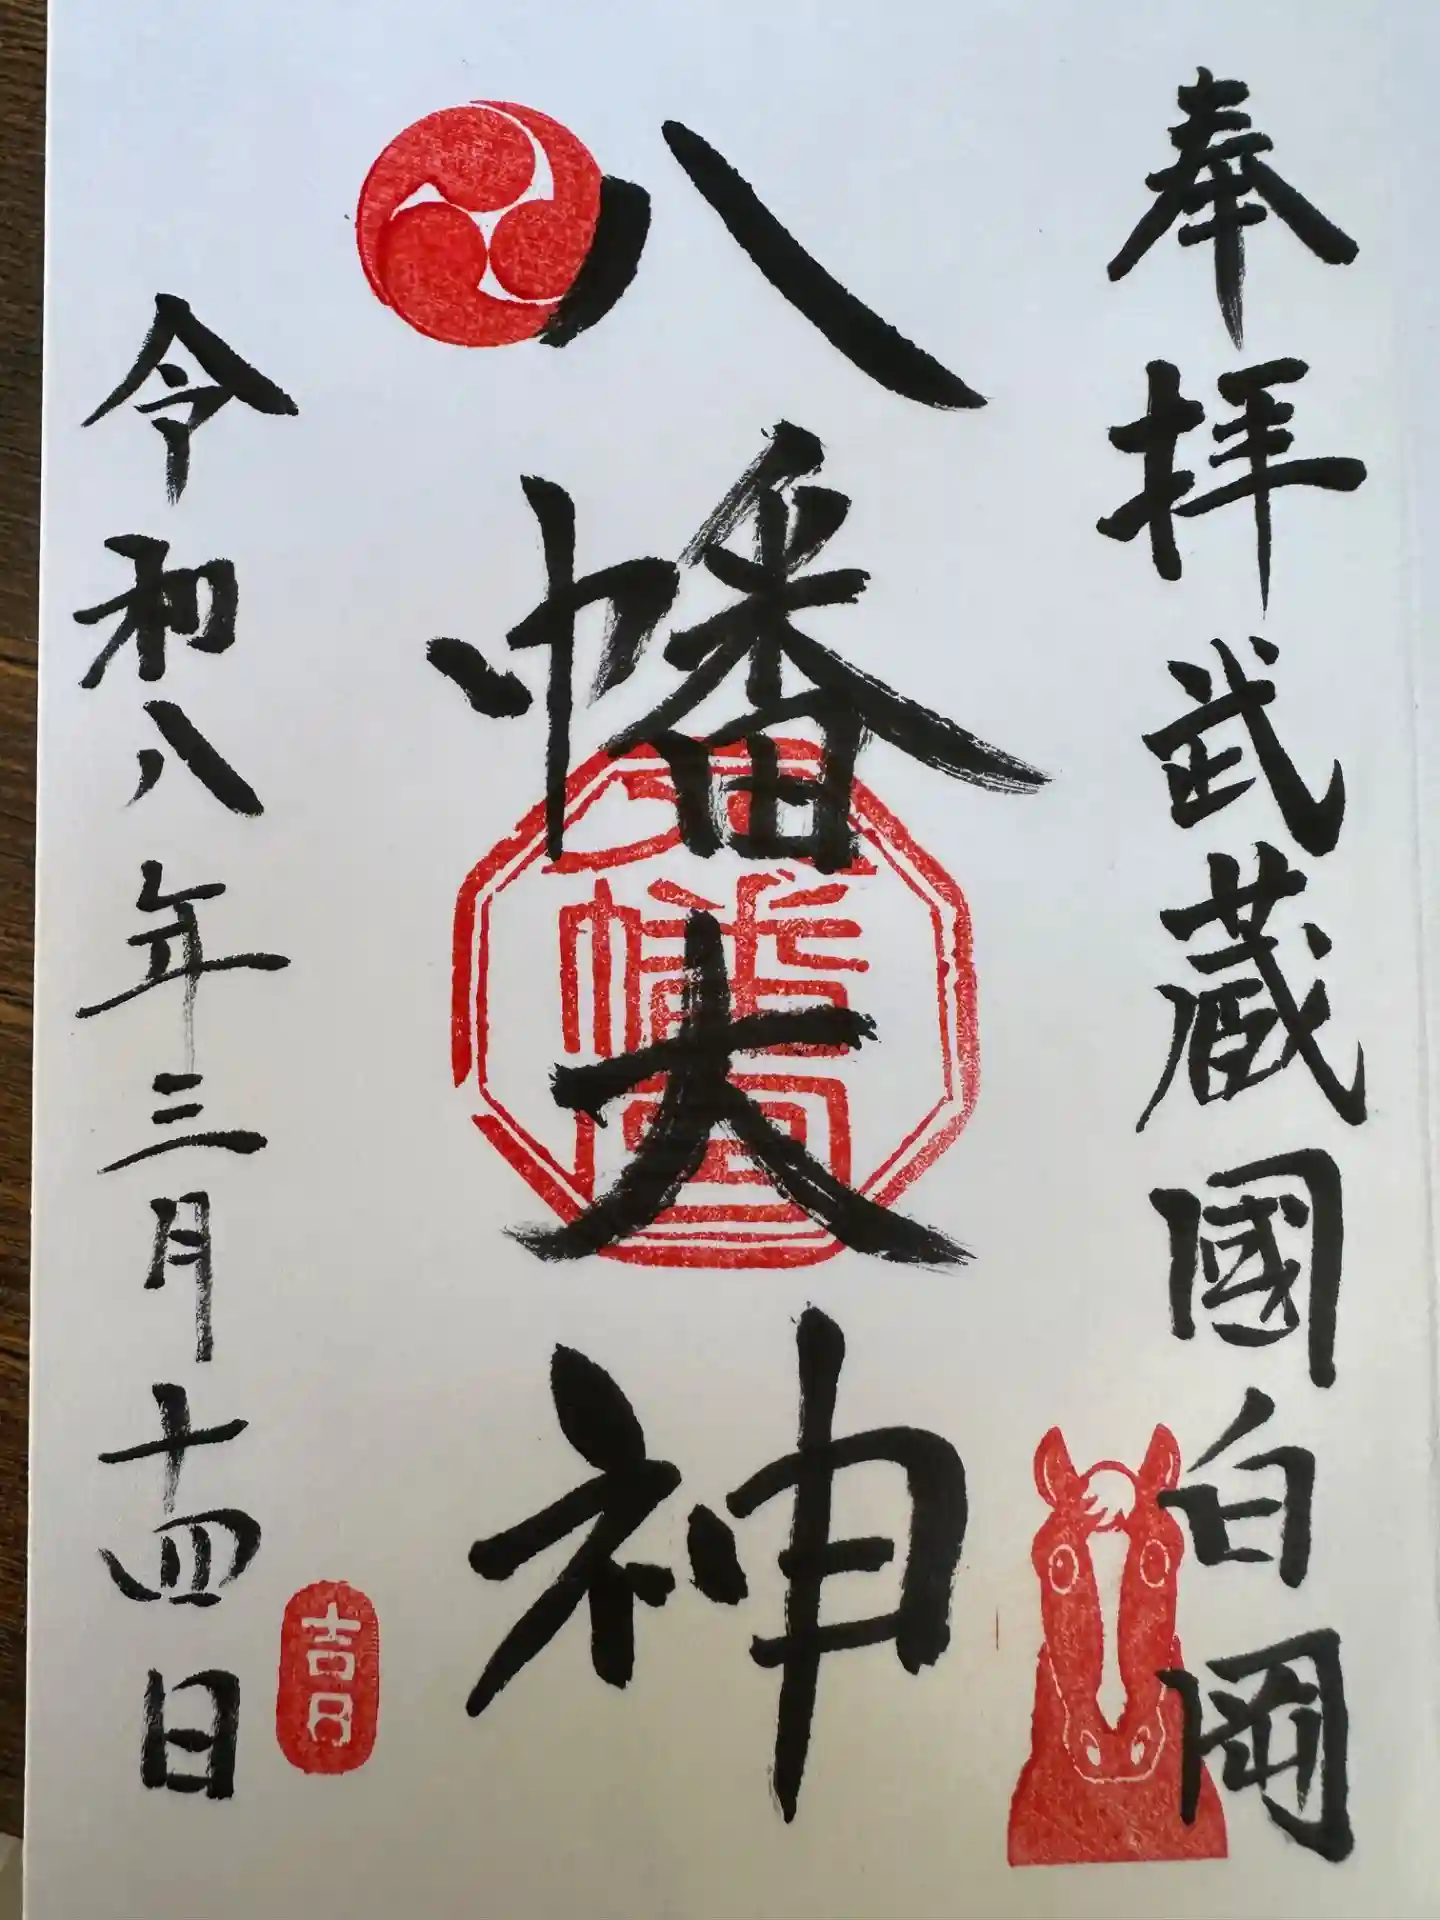 奉拝 武蔵國白岡
八幡大神
八幡宮
令和八年三月十四日
吉日